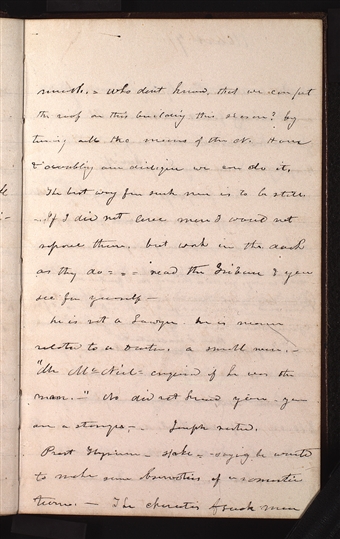 much. = who dont know, that we can put
the roof on this building this season? by
tuning all the means of the N. House
& assembly and diligence we can do it.
The best way for such men is to be still
If I did not love men I would not
reprove them, but work in the dark
as they do = = = read the Tribune & you
see for yourself —
he is not a Lawyer. he is nearer
related to a Doctor, a small man. —
"Mr McNeil = enquired if he was the
man. —" No did not hear you — you
are a stranger —. Joseph rested.
Prest Higinson = spoke = saying he wanted
to make some remarks of a
term. — The character of such men